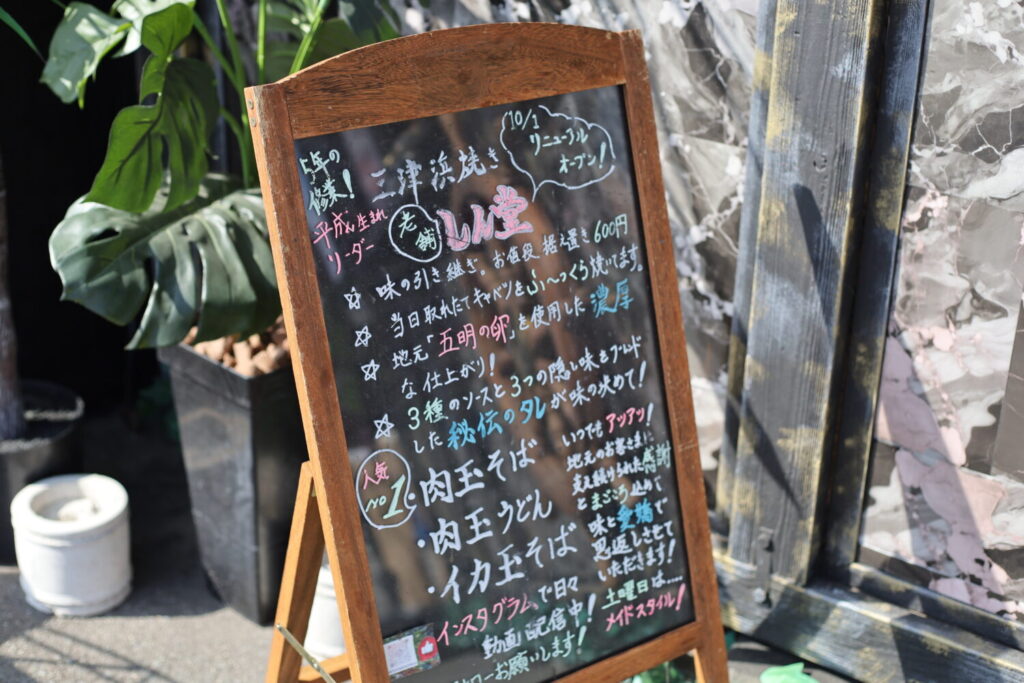 10/1
リニューアル
オープン!
5年の
修業!
三津浜焼き
平成生まれ
リーダー
老舗
しん堂
☆ 味の引き継ぎ。お値段据え置き600円
☆ 当日取れたてキャベツをふ〜っくら焼いてます。
☆ 地元「五明の卵」を使用した濃厚
な仕上がり!
☆ 3種のソースと3つの隠し味をブレンド
した秘伝のタレが味の決め手!
人気
No1
・肉玉そば
・肉玉うどん
・イカ玉そば
いつでもアツアツ!
地元のお客さまに
支え続けられた感謝
とまごころ込めて
味と愛嬌で
恩返しさせて
いただきます!
インスタグラムで日々
動画配信中!
ローお願いします!
土曜日は……
メイドスタイル!